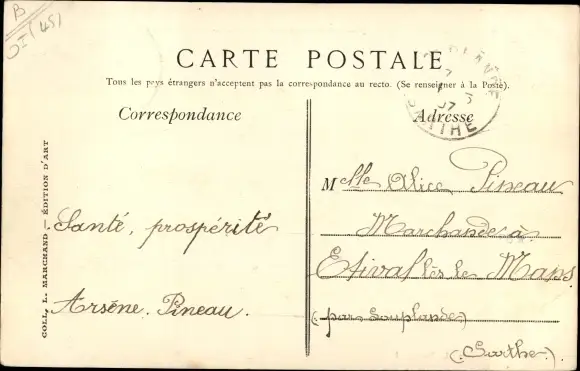 B
OI (45)
CARTE POSTALE
Tous les pays étrangers n'acceptent pas la correspondance au recto. (Se renseigner à la Poste).
Correspondance
Adresse
SARTHE
COLL. L. MARCHAND. — ÉDITION D'ART
Santé, prospérité
Arsène. Pineau.
Melle Alice Pineau
Marchande à
Etival lès le Mans
(par Souplande)
(Sarthe).